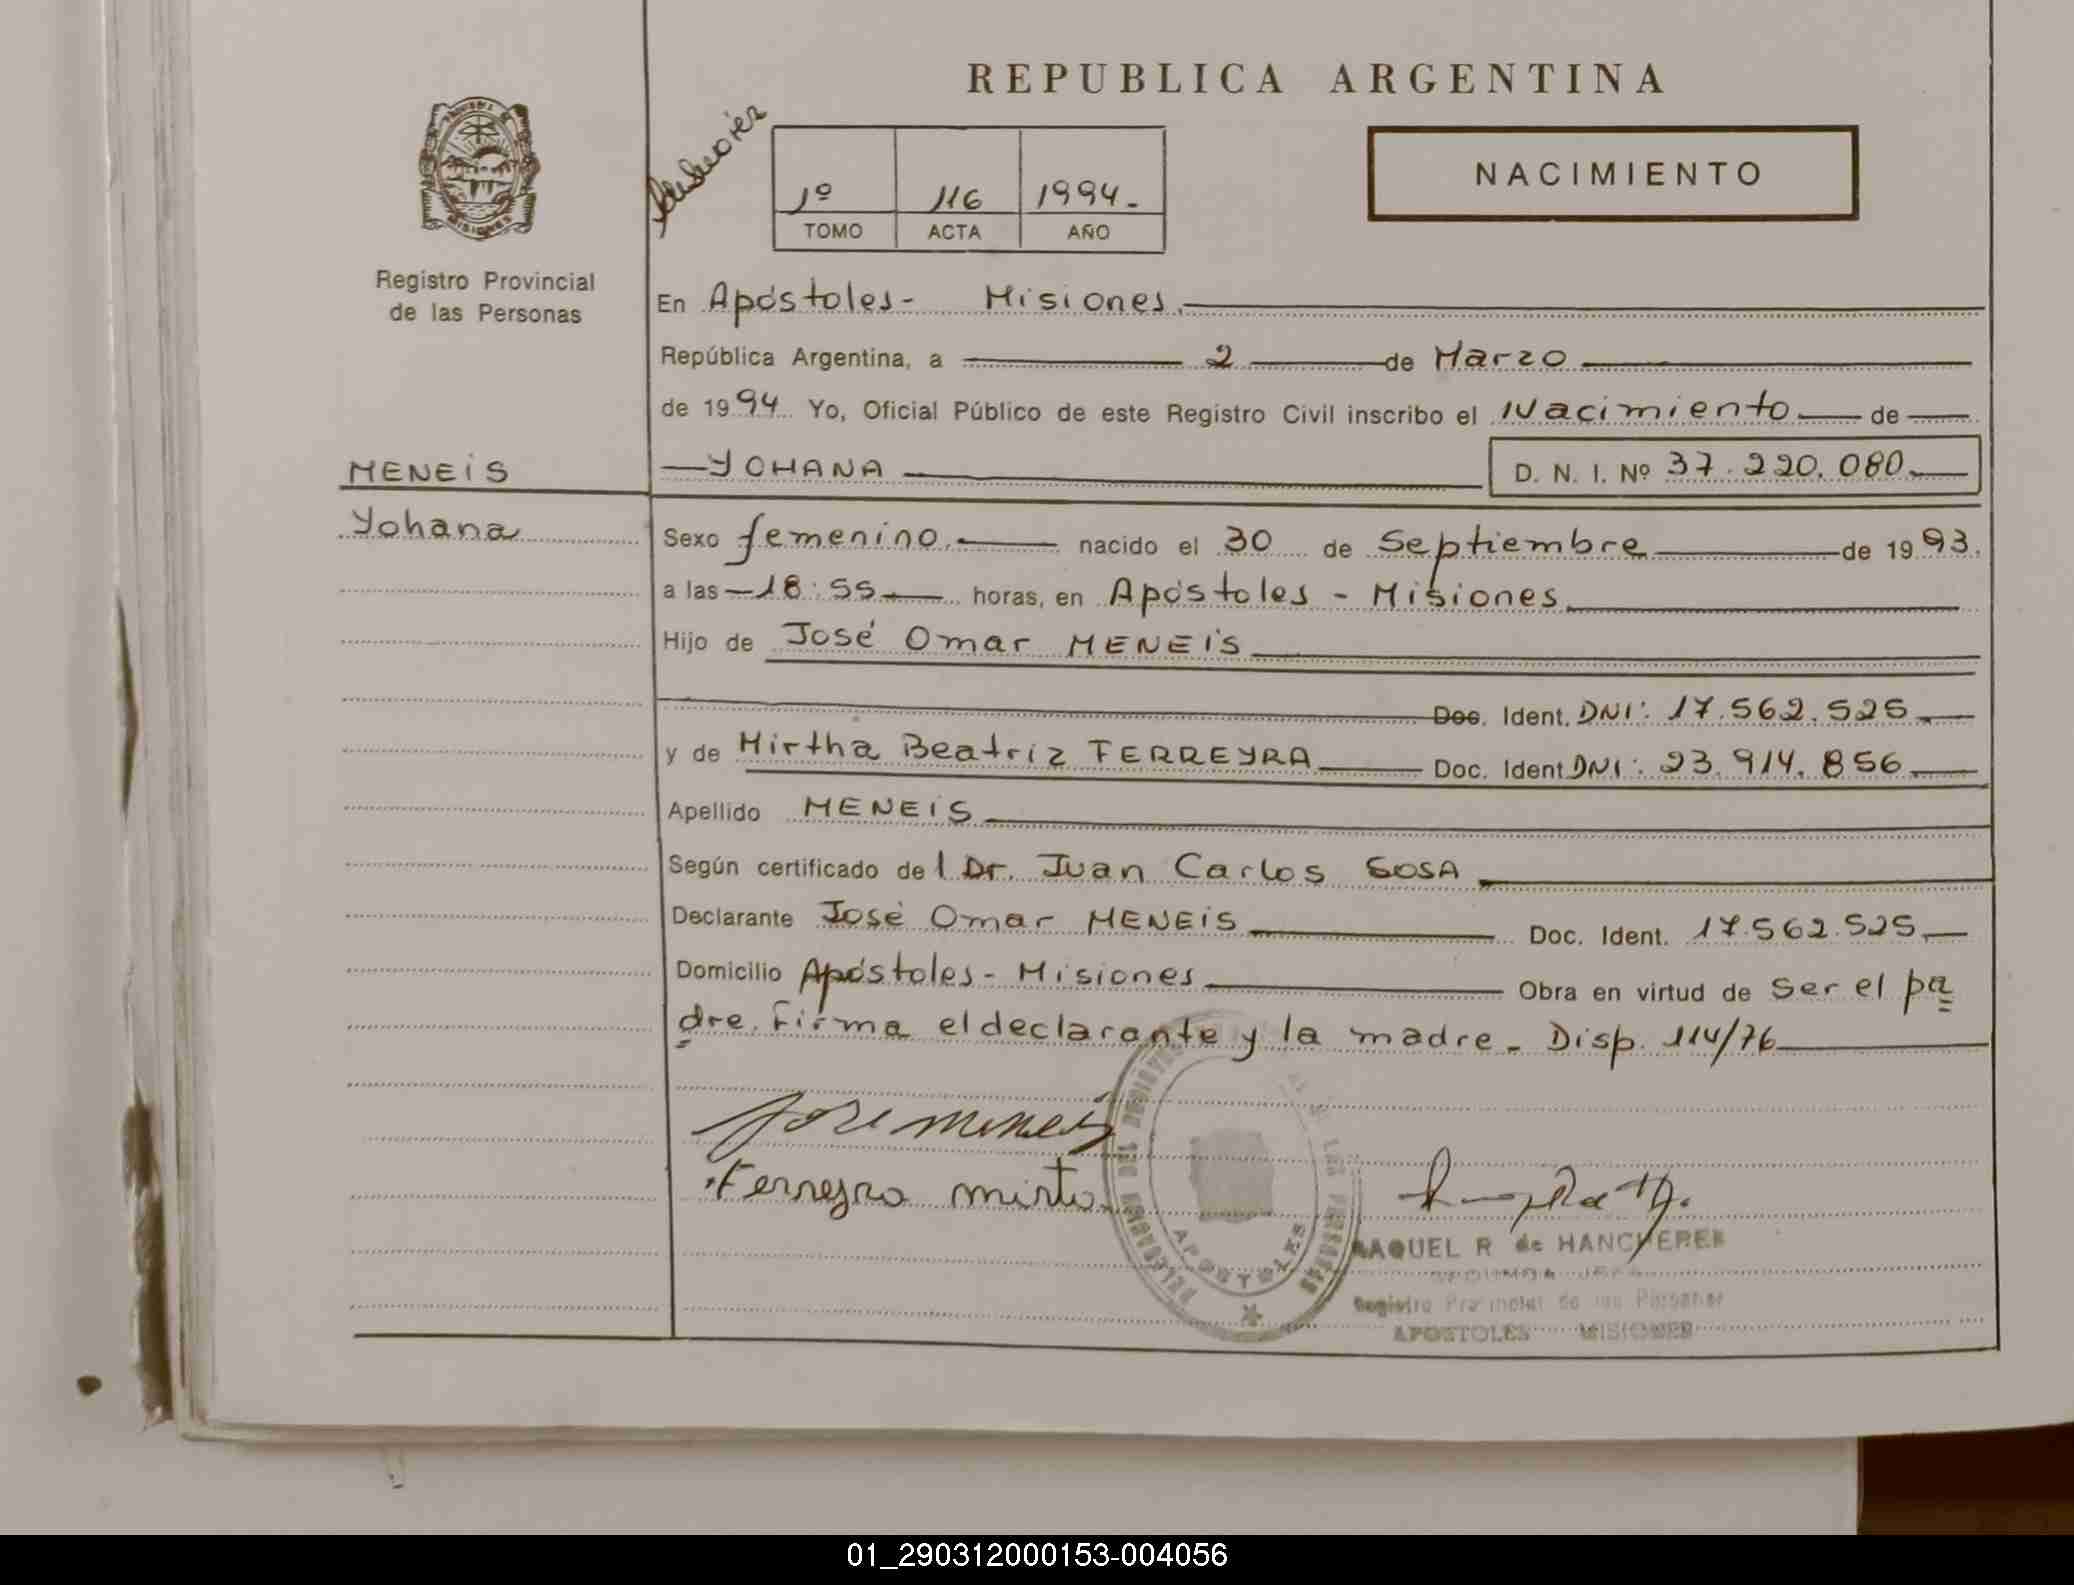 REPUBLICA ARGENTINA
NACIMIENTO
1º 116 1994.-
TOMO ACTA AÑO
MISIONES
Registro Provincial
de las Personas
En Apóstoles- Misiones.
República Argentina, a 2 de Marzo
de 1994 Yo, Oficial Público de este Registro Civil inscribo el Nacimiento de
MENEIS
YOHANA D. N. I. Nº 37.220.080.
Yohana
Sexo femenino. nacido el 30 de Septiembre de 1993.
a las 18:55 horas, en Apóstoles - Misiones
Hijo de José Omar MENEIS
Doc. Ident. DNI: 17.562.525.
y de Mirtha Beatriz FERREYRA Doc. Ident DNI: 23.914.856
Apellido MENEIS
Según certificado del Dr. Juan Carlos SOSA
Declarante José Omar MENEIS Doc. Ident. 17.562.525.
Domicilio Apóstoles- Misiones Obra en virtud de ser el pa
dre. Firma el declarante y la madre. Disp. 114/76
Jose Meneis
Ferreyra mirta
DELEGACION DEL REGISTRO DE LAS PERSONAS
APOSTOLES
RAQUEL R de HANCHEREK
SEGUNDA JEFA
Registro Provincial de las Personas
APOSTOLES MISIONES
01_290312000153-004056